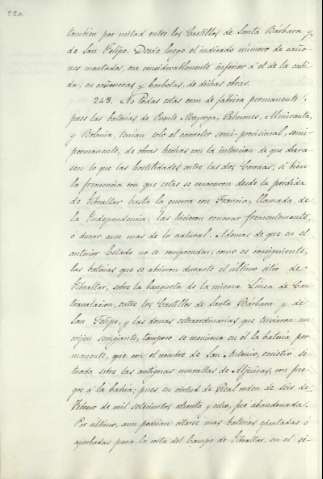 220
tambien por mitad entre los Castillos de Santa Bárbara y
de San Felipe. Desde luego el indicado número de caño-
nes montados, era considerablemente inferior á el de la cabi-
da, en cañoneras y barbetas, de dichas obras.
243. No todas estas eran de fábrica permanente;
pues las baterías de Punta Mayorga, Palmones, Mirasierra,
y Bolonia, tenian solo el carácter semi-provisional, semi-
permanente, de obras hechas con la intencion de que dura-
sen lo que las hostilidades entre las dos Coronas; si bien
la frecuencia con que estas se renovaron desde la perdida
de Gibraltar hasta la guerra con Francia, llamada de
la Independencia, las hicieron renovar frecuentemente,
ó durar aun mas de lo natural. Ademas de que en el
anterior Estado no se comprenden, como es consiguiente,
las baterías que se abrieron durante el último sitio de
Gibraltar, sobre la banqueta de la misma Linea de Con-
travalacion, entre los Castillos de Santa Bárbara y de
San Felipe, y las demas extraordinarias que tuvieron un
orígen semejante; tampoco se menciona en él la batería per-
manente, que con el nombre de San Antonio, existió si-
tuada sobre las antiguas murallas de Algeciras, con fue-
gos á la bahía; pues en virtud de Real orden de seis de
Febrero de mil setecientos ochenta y ocho, fué abandonada.
Por último, aun podrian citarse mas baterías ejecutadas ó
aprobadas para la costa del Campo de Gibraltar, en el si-